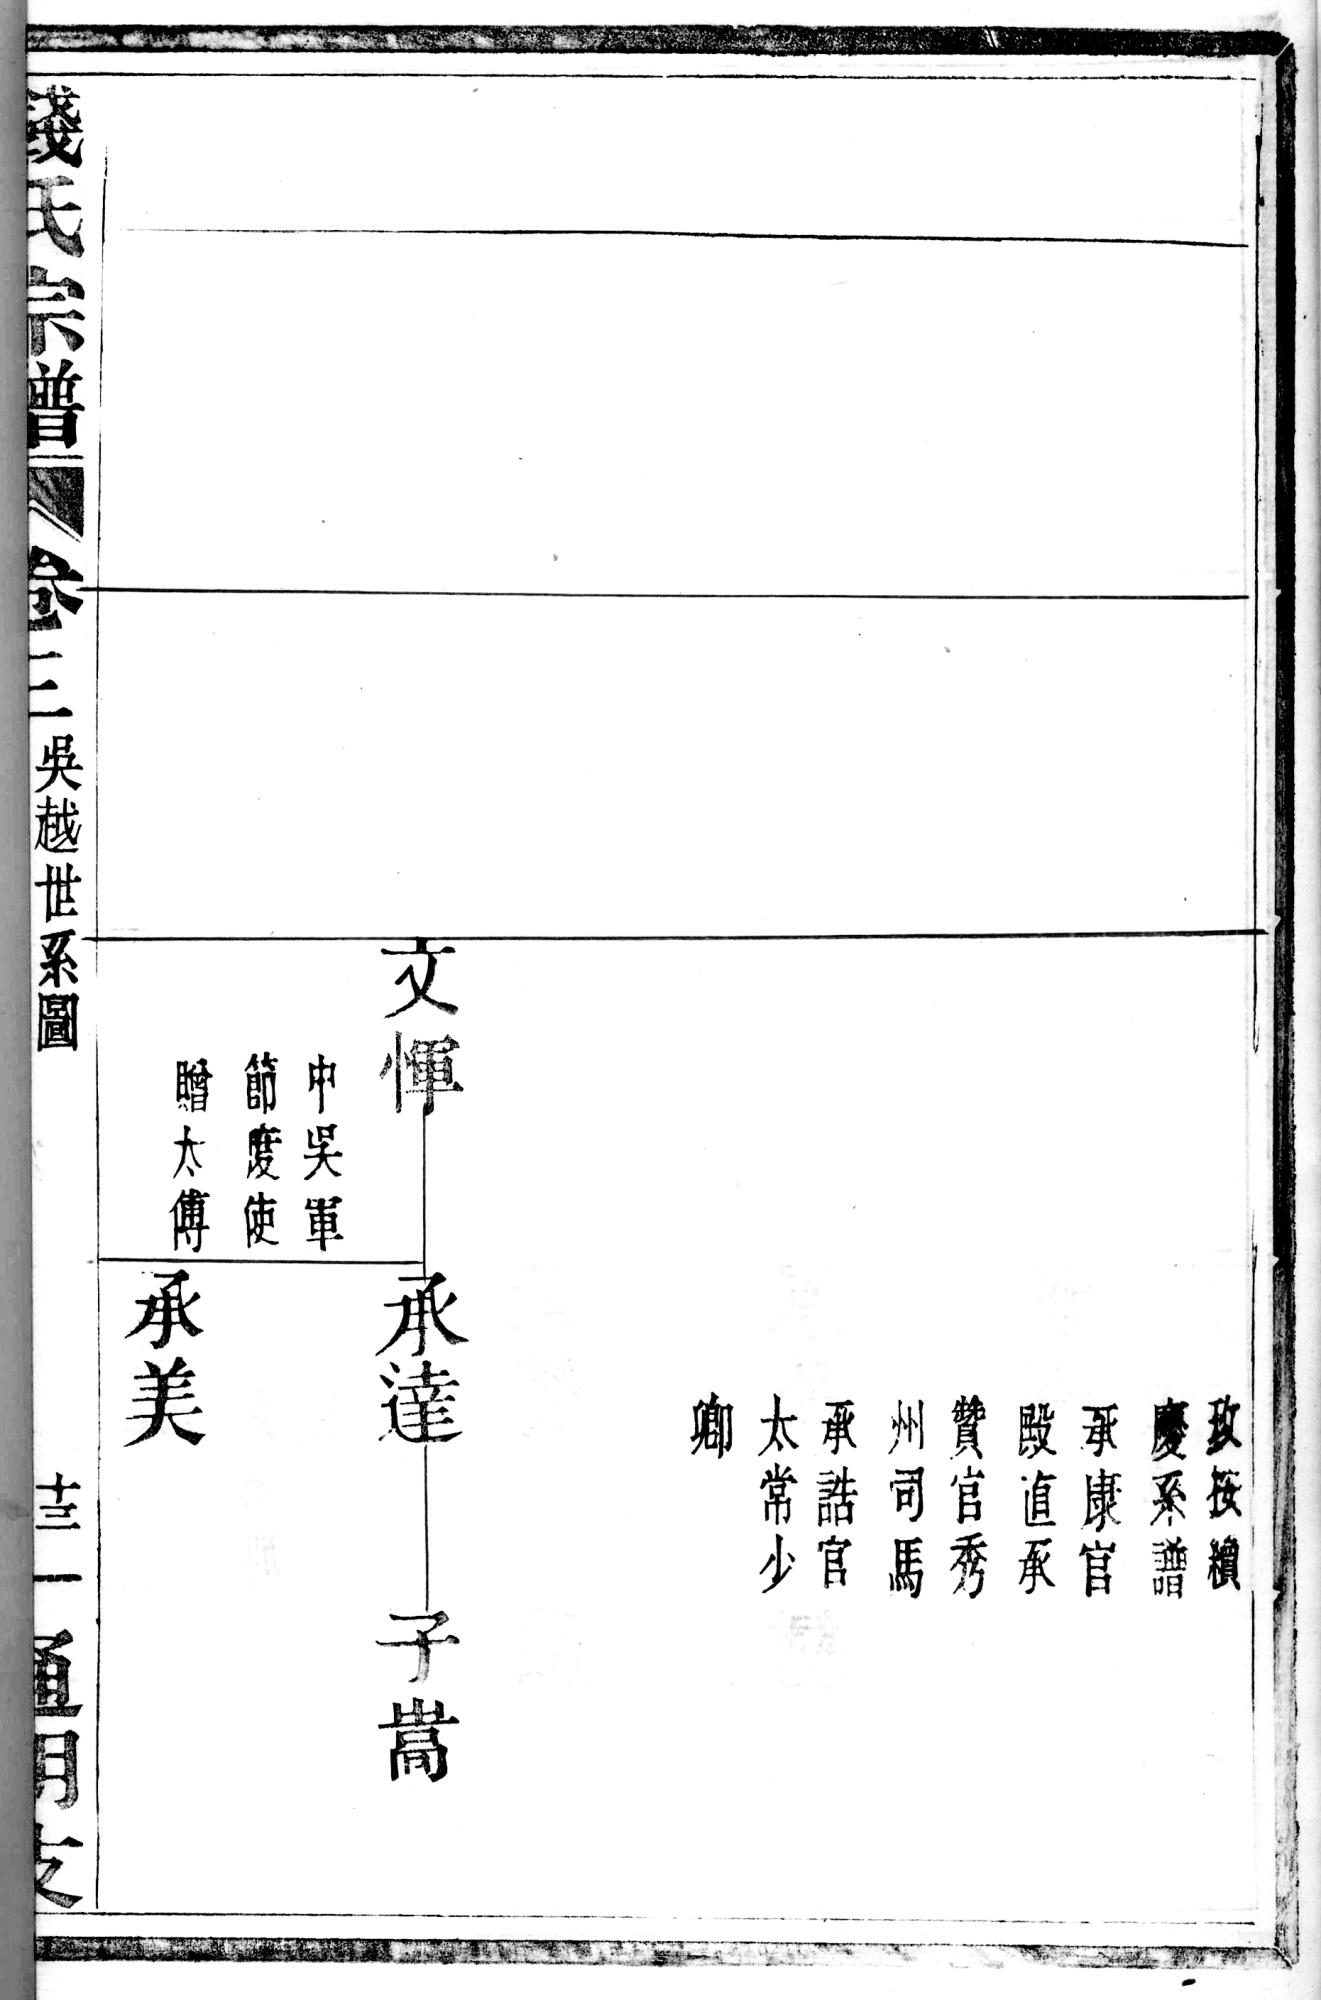 攷按續
慶系譜
承康官
殿直承
贊官秀
州司馬
承誥官
太常少
卿
文惲
中吳軍
節度使
贈太傅
承達
承美
子嵩
錢氏宗譜
卷三
吳越世系圖
十三
通明支